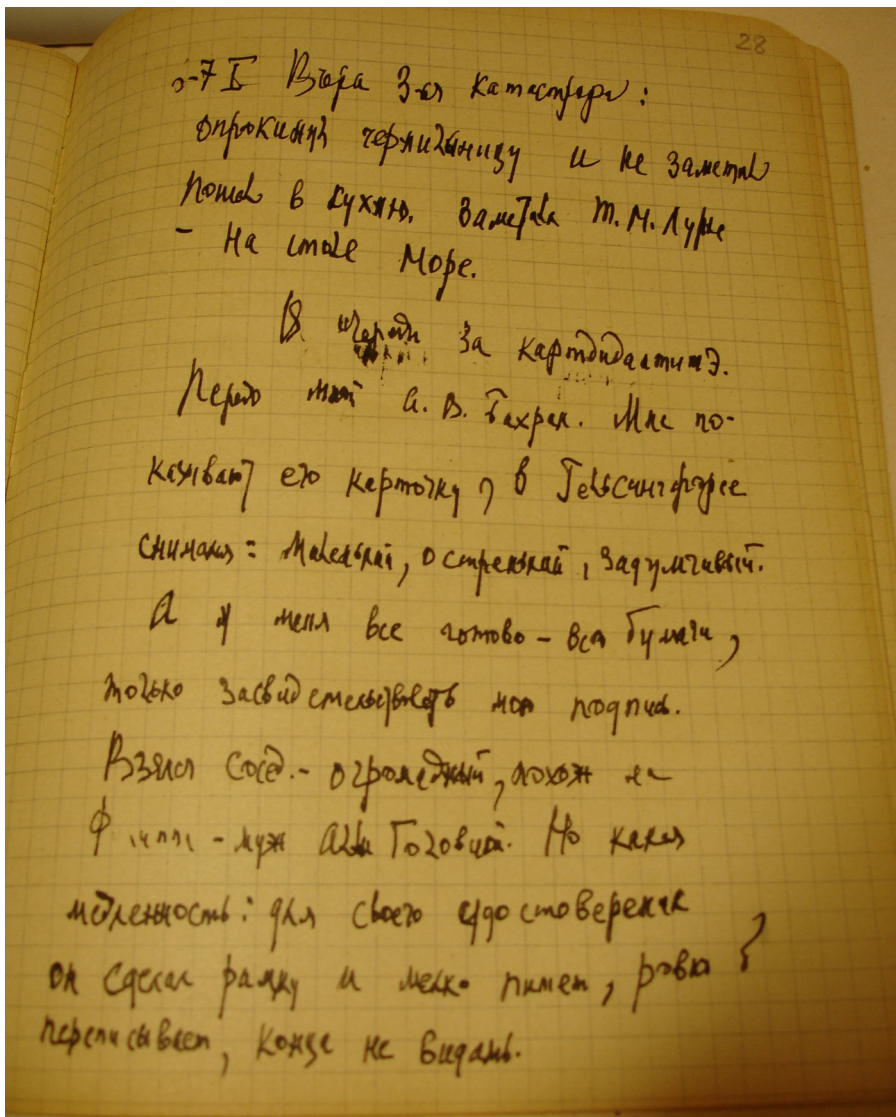 28
6-7 X Вчера 3-ья катастрофа:
опрокинул чернильницу и не заметил
пошел в кухню. Заметила Т. М. Лурье
- На столе море.
В череди за картдидантитэ.
Передо мной А. В. Бахрах. Мне по-
казывают его карточку, в Гельсингфорсе
снимался: маленький, остренький, задумчивый.
А у меня все готово - все бумаги,
только засвидетельствовать мою подпись.
Взялся сосед - огромадный, похож на
муж Аллы Головиной. Но какая
медленность: для своего удостоверения
он сделал рамку и мелко пишет, ровно
переписывает, конца не видать.